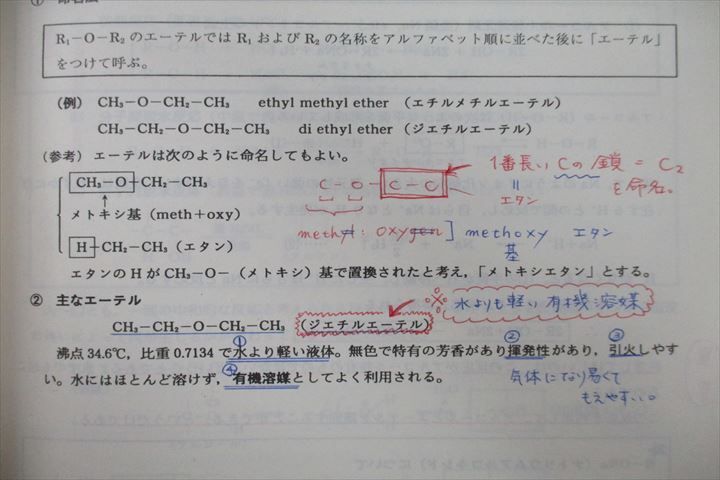 ① 命名法
R₁－O－R₂のエーテルではR₁およびR₂の名称をアルファベット順に並べた後に「エーテル」
をつけて呼ぶ。
（例） CH₃－O－CH₂－CH₃ ethyl methyl ether （エチルメチルエーテル）
CH₃－CH₂－O－CH₂－CH₃ di ethyl ether （ジエチルエーテル）
（参考） エーテルは次のように命名してもよい。
1番長いCの鎖 = C₂
を命名。
CH₃－O－CH₂－CH₃
C－O－C－C
エタン
メトキシ基（meth＋oxy）
methyl : oxygen ] methoxy エタン
基
H－CH₂－CH₃（エタン）
エタンのHがCH₃－O－（メトキシ）基で置換されたと考え，「メトキシエタン」とする。
② 主なエーテル
※ 水よりも軽い有機溶媒
CH₃－CH₂－O－CH₂－CH₃ （ジエチルエーテル）
① ② ③
沸点34.6℃，比重0.7134で水より軽い液体。無色で特有の芳香があり揮発性があり，引火しやす
④
い。水にはほとんど溶けず，有機溶媒としてよく利用される。
気体になり易くて
もえやすい。